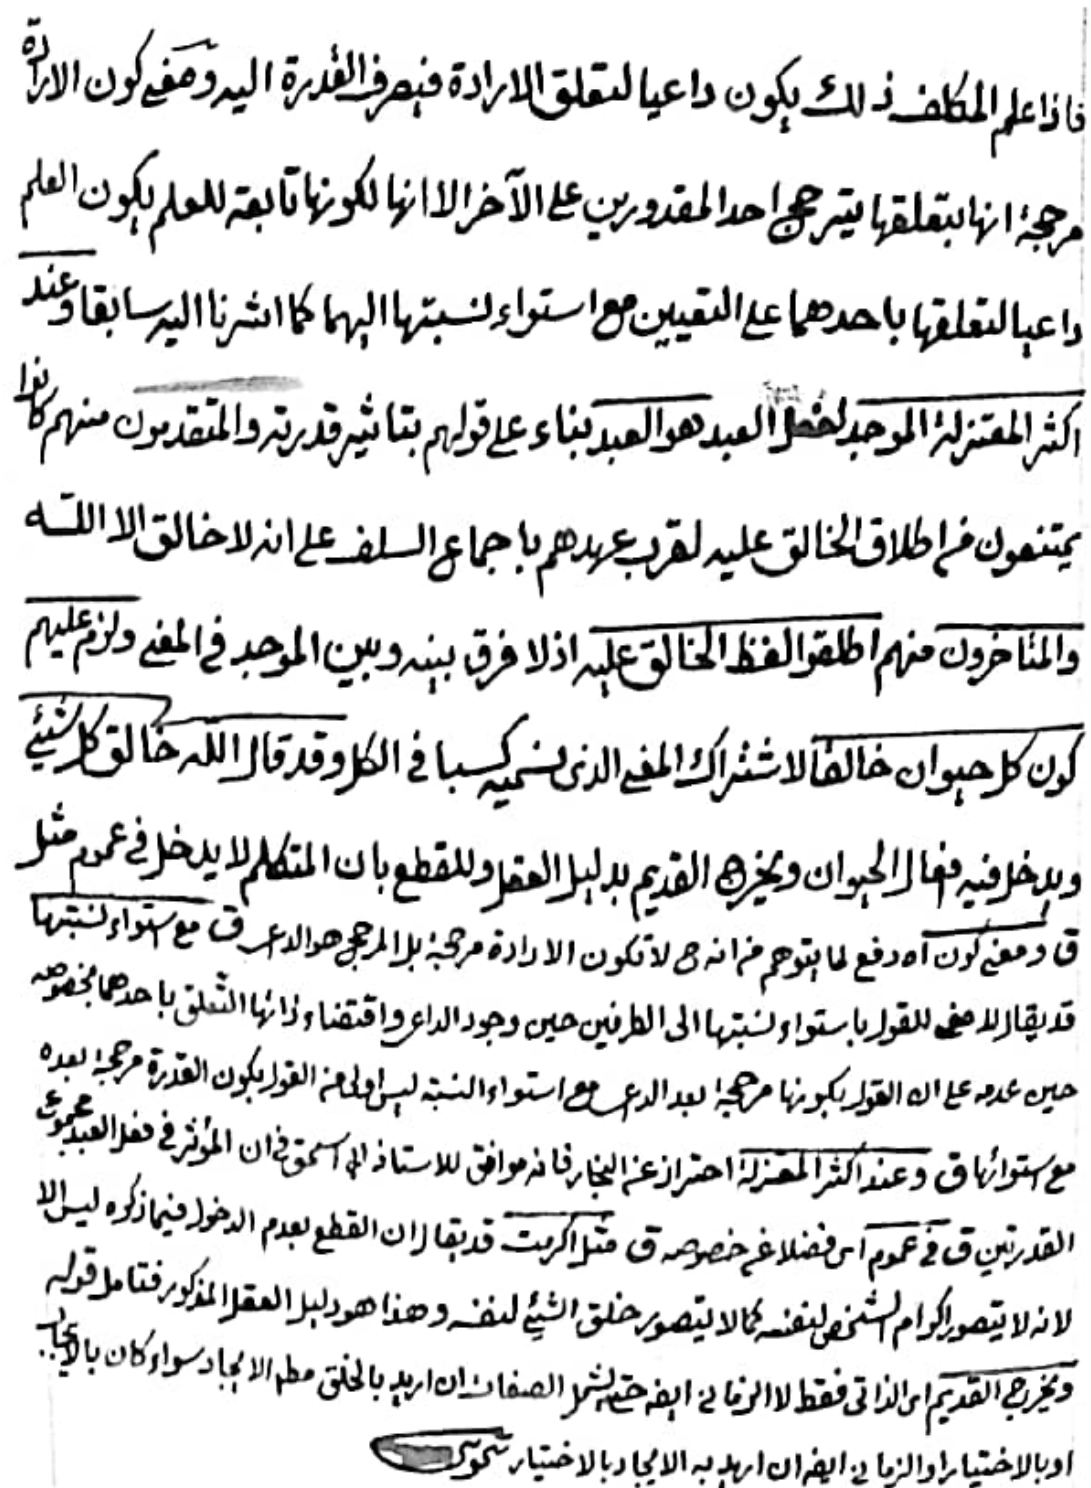 فاذا علم المكلف ذلك يكون داعيا لتعلق الارادة فيصرف القدرة اليه ومعنى كون الارادة
مرجحة انها بتعلقها يترجح احد المقدورين على الآخر الا انها لكونها تابعة للعلم يكون العلم
داعيا لتعلقها باحدهما على التعيين مع استواء نسبتها اليهما كما اشرنا اليه سابقا وعند
اكثر المعتزلة الموجد لفعل العبد هو العبد بناء على قولهم بتاثير قدرته والمتقدمون منهم كانوا
يمتنعون من اطلاق الخالق عليه لقرب عهدهم باجماع السلف على انه لا خالق الا الله
والمتاخرون منهم اطلقوا لفظ الخالق عليه اذ لا فرق بينه وبين الموجد في المعنى ولزم عليهم
كون كل حيوان خالقا لاشتراك المعنى الذى نسميه كسبا في الكل وقد قال الله خالق كل شيئ
ويدخل فيه افعال الحيوان ويخرج القديم بدليل العقل وللقطع بان المتكلم لا يدخل في عموم مثل
ق ومعنى كون اه دفع لما يتوهم من انه ح لا تكون الارادة مرجحة بل المرجح هو الداعى ق مع استواء نسبتها
قد يقال لا معنى للقول باستواء نسبتها الى الطرفين حين وجود الداعى واقتضاء ذاتها التعلق باحدهما بخصوصه
حين عدمه على ان القول بكونها مرجحة بعد الداعى مع استواء النسبة ليس اولى من القول بكون القدرة مرجحة بعده
مع استوائها ق وعند اكثر المعتزلة احتراز عن النجار فانه موافق للاستاذ ابى اسحق في ان المؤثر في فعل العبد مجموع
القدرتين ق في عموم اى فضلا عن خصوصه ق مثل اكرمت قد يقال ان القطع بعدم الدخول فيما ذكره ليس الا
لانه لا يتصور اكرام الشخص لنفسه كما لا يتصور خلق الشيئ لنفسه وهذا هو دليل العقل المذكور فتامل قوله
ويخرج القديم اى الذاتى فقط لا الزمانى ايضه حتى يشمل الصفات ان اريد بالخلق مطم الايجاد سواء كان بالايجاب
او بالاختيار او الزمانى ايضه ان اريد به الايجاد بالاختيار